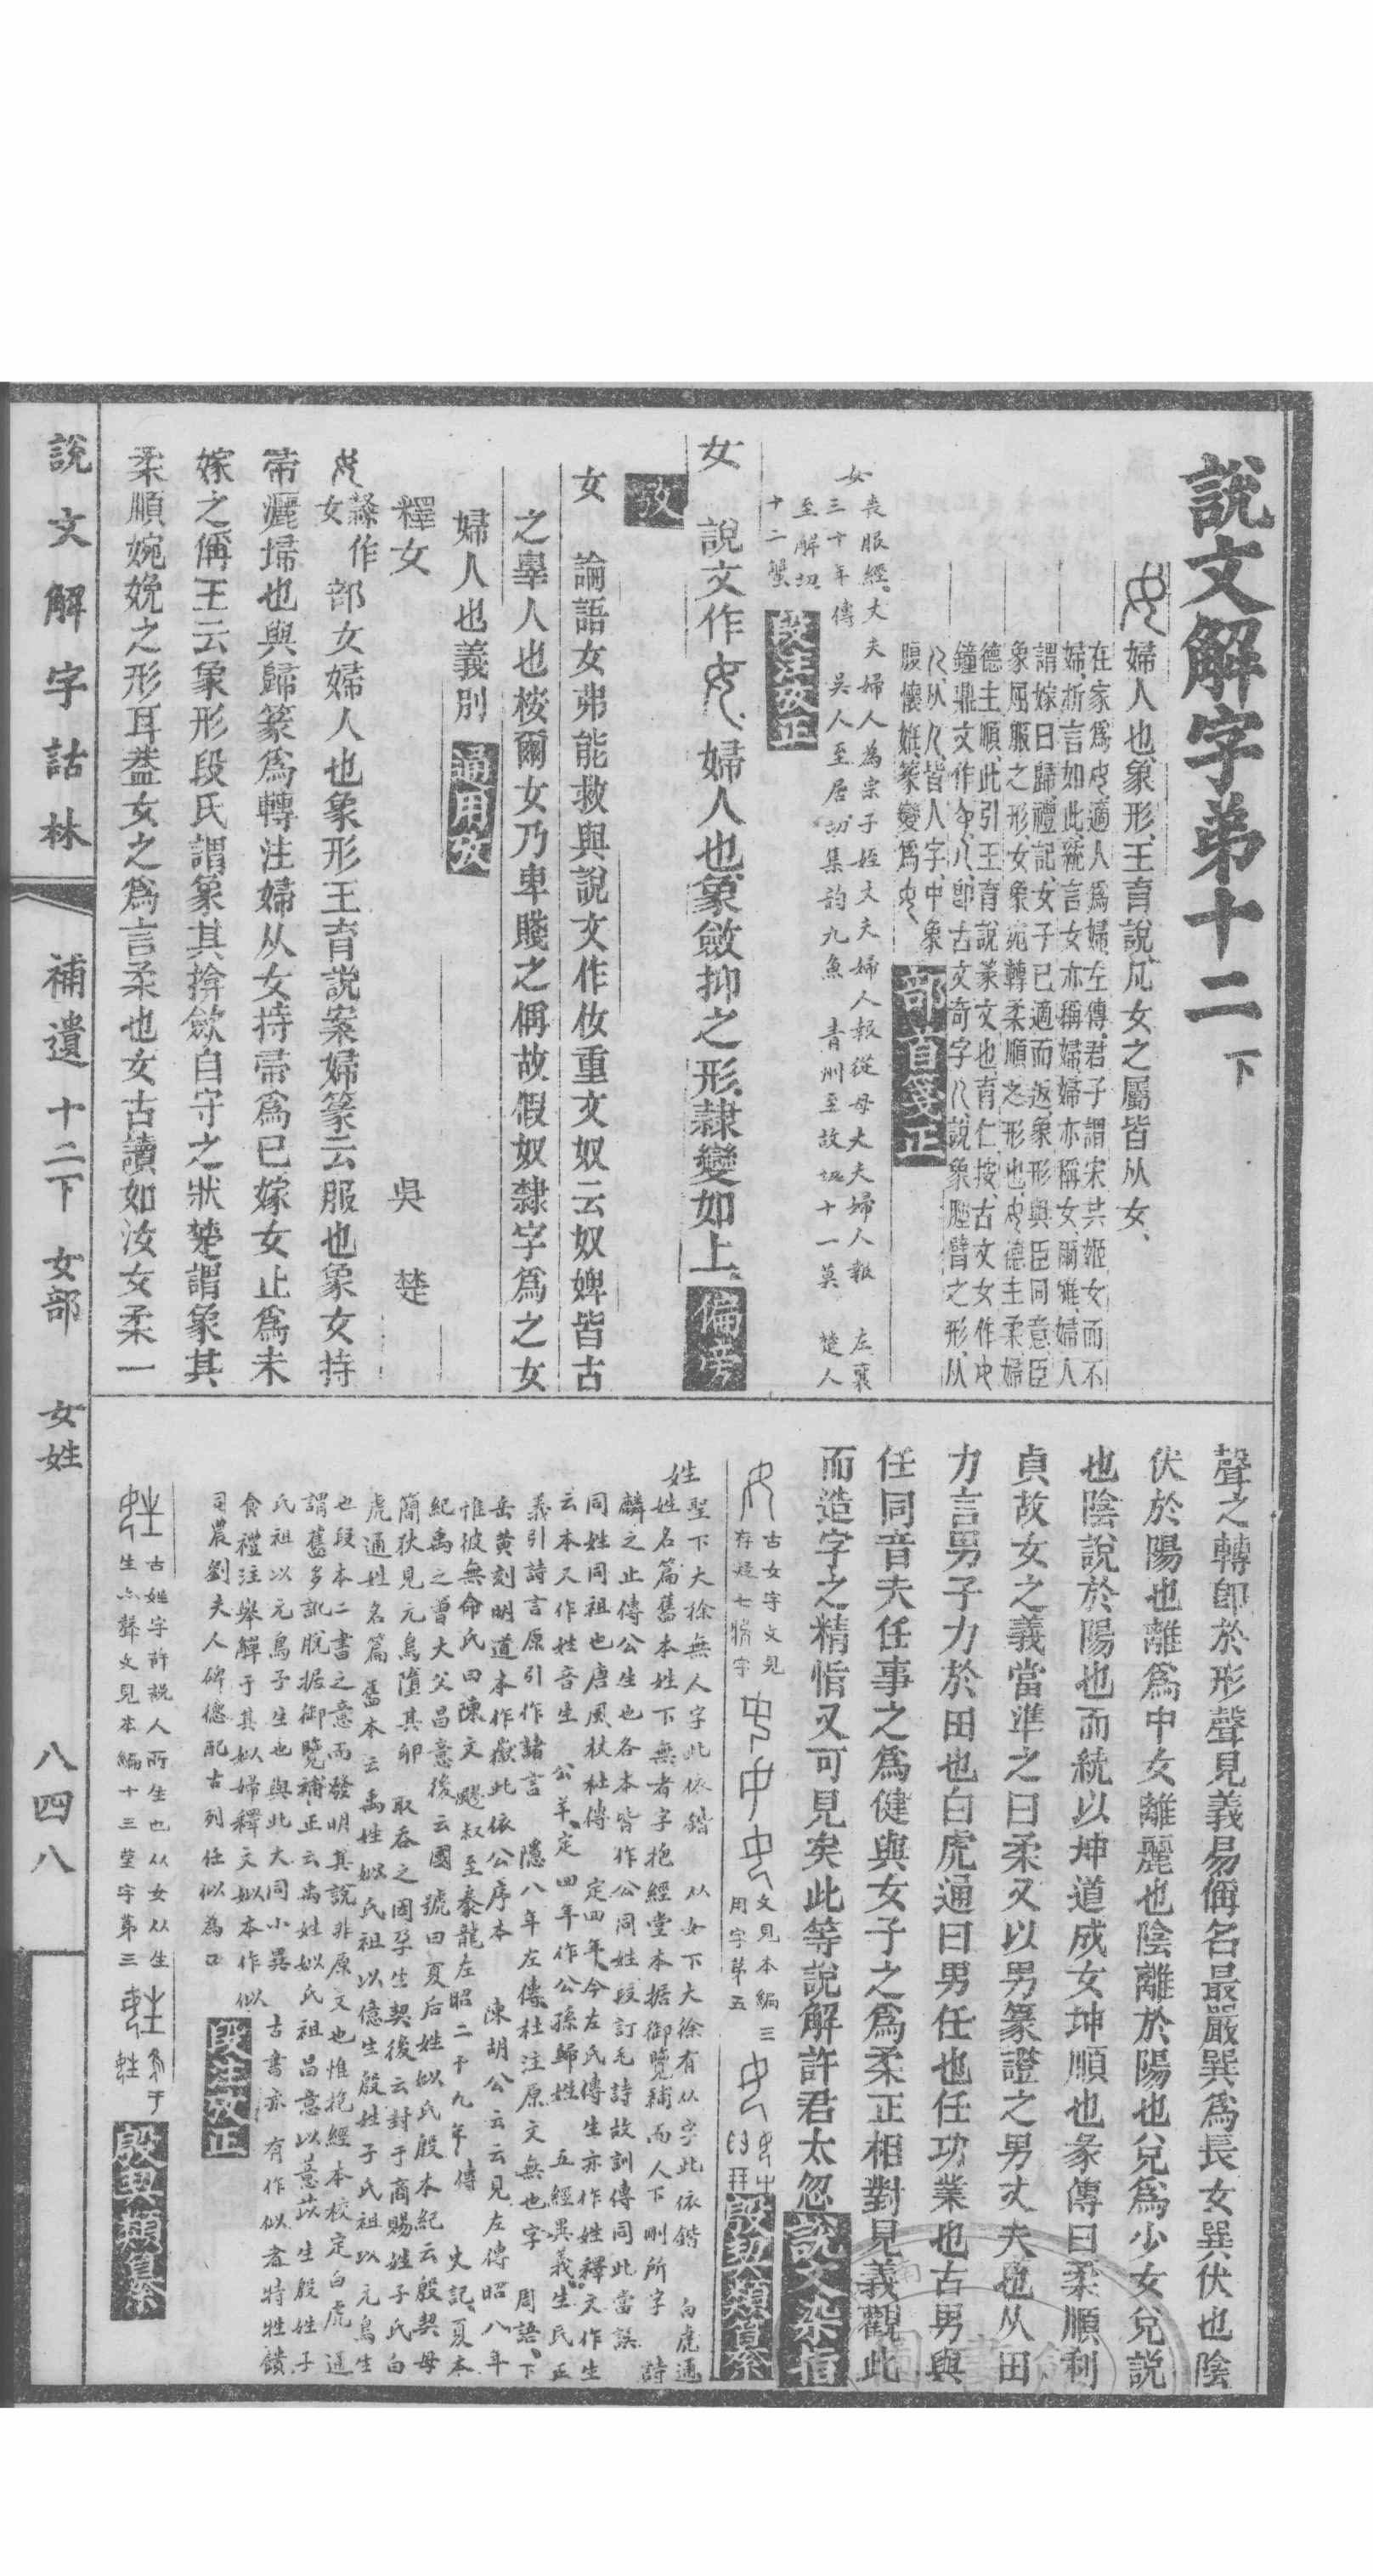 說文解字弟十二下
婦人也象形王育說凡女之屬皆从女
在家爲女適人爲婦左傳君子謂宋共姬女而不
婦析言如此統言女亦稱婦婦亦稱女爾雅婦人
謂嫁曰歸禮記女子已適而返象形與臣同意臣
象屈服之形女象宛轉柔順之形也女德主柔婦
德主順此引王育說篆文也育仁按古文女作
鐘鼎文作 卽古文奇字人說象脛臂之形从
从人皆人字中象
腹懷妊篆變爲
部首箋正
女 喪服經大夫婦人為宗子姪大夫婦人報從母大夫婦人報 左襄
三十年傳 吳人至居切集韵九魚 青州至故切十一莫 楚人
至解切
十二蟹
段注攷正
女 說文作 婦人也象斂抑之形隸變如上 偏旁
攷
女 論語女弗能救與說文作伮重文奴云奴婢皆古
之辠人也桉爾女乃卑賤之偁故假奴隸字爲之女
婦人也義別 通用攷
釋女 吳楚
隸作女 部女婦人也象形王育說案婦篆云服也象女持
帚灑埽也與歸篆爲轉注婦从女持帚爲已嫁女止爲未
嫁之偁王云象形段氏謂象其揜斂自守之狀楚謂象其
柔順婉娩之形耳葢女之爲言柔也女古讀如汝女柔一
聲之轉卽於形聲見義易偁名最嚴巽爲長女巽伏也陰
伏於陽也離爲中女離麗也陰離於陽也兌爲少女兌說
也陰說於陽也而統以坤道成女坤順也彖傳曰柔順利
貞故女之義當準之曰柔又以男篆證之男丈夫也从田
力言男子力於田也白虎通曰男任也任功業也古男與
任同音夫任事之爲健與女子之爲柔正相對見義觀此
而造字之精恉又可見矣此等說解許君太忽 說文染指
古女字文見
存疑七
文見本編三
用字弟五
殷契類纂
姓 聖下大徐無人字此依鍇 从女下大徐有从字此依鍇 白虎通
姓名篇舊本姓下無者字抱經堂本据御覽補而人下刪所字 詩
麟之止傳公生也各本皆作公同姓段訂毛詩故訓傳同此當誤
同姓同祖也唐風杕杜傳 定四年今左氏傳生亦作姓釋文作生
云本又作姓音生 公羊定四年作公孫歸姓 五經異義生民正
義引詩言原引作諸言 隱八年左傳杜注原文無也字 周語下
岳黃刻明道本作嶽此依公序本 陳胡公云云見左傳昭八年
惟彼無命氏曰陳文 颺叔至豢龍左昭二十九年傳 史記夏本
紀禹之曾大父昌意後云國號曰夏后姓姒氏殷本紀云殷契母
簡狄見元鳥墮其卵取吞之因孕生契後云封于商賜姓子氏白
虎通姓名篇舊本云禹姓姒氏祖以億生殷姓子氏祖以元鳥生
也段本二書之意而發明其說非原文也惟抱經本校定白虎通
謂舊多訛脫据御覽補正云禹姓姒氏祖昌意以薏苡生殷姓子
氏祖以元鳥子生也與此大同小異
食禮注舉觶于其姒婦釋文姒本作似 古書亦有作似者特牲饋
司農劉夫人碑德配古列任似為口
段注攷正
古姓字許說人所生也从女从生
生亦聲文見本編十三
字弟三
殷契類纂
說文解字詁林
補遺 十二下 女部 女姓
八四八